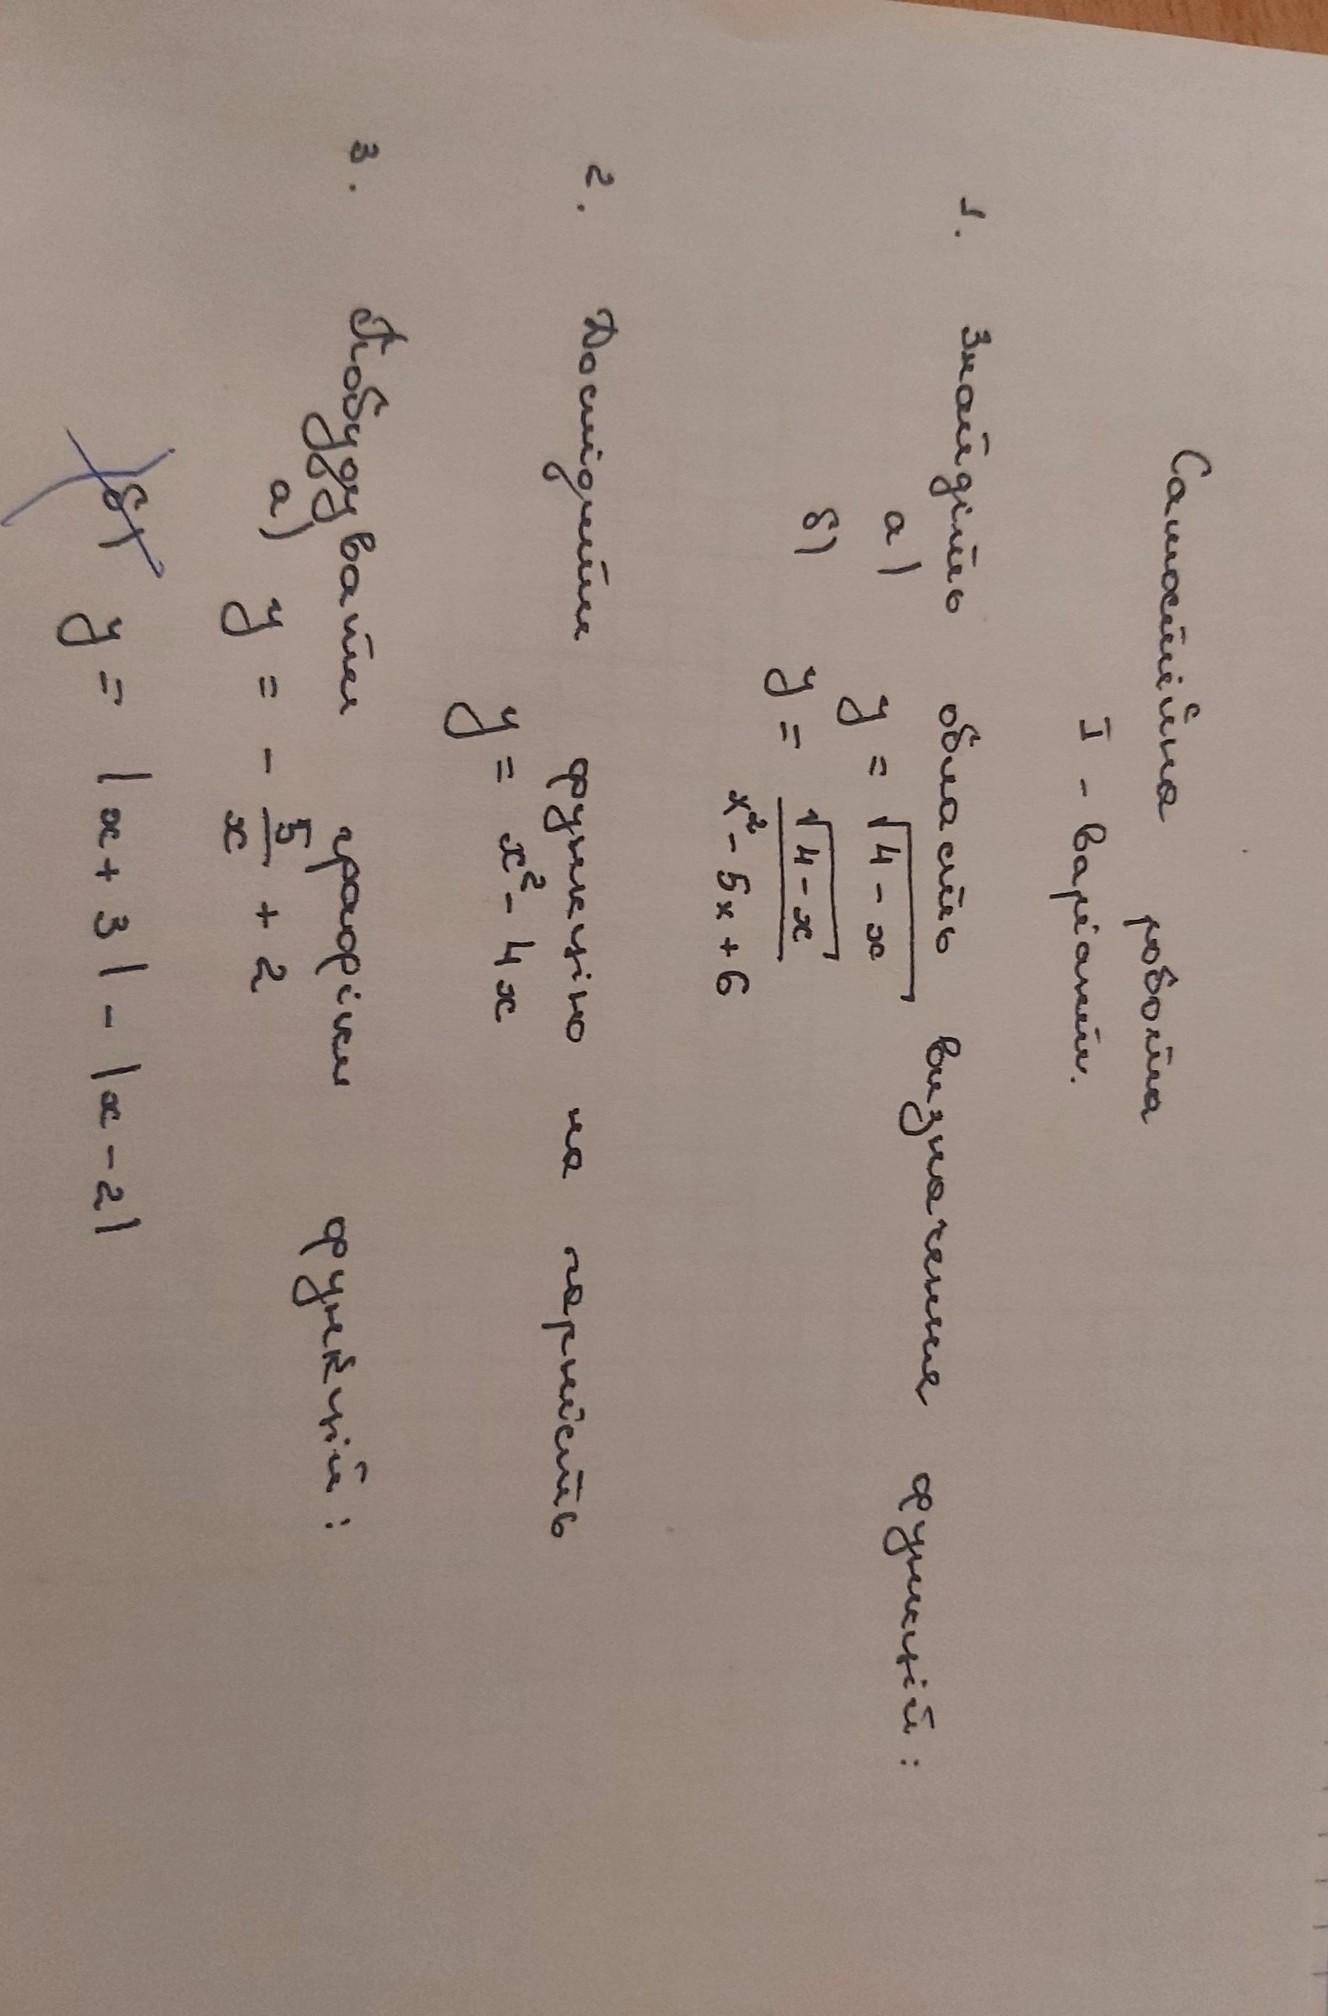 Самостійна робота
I - варіант.
1. Знайдіть область визначення функцій:
а) y = √4 - x
б) y = √4 - x / x² - 5x + 6
2. Дослідити функцію на парність
y = x² - 4x
3. Побудувати графіки функцій:
а) y = - 5/x + 2
б) y = |x + 3| - |x - 2|